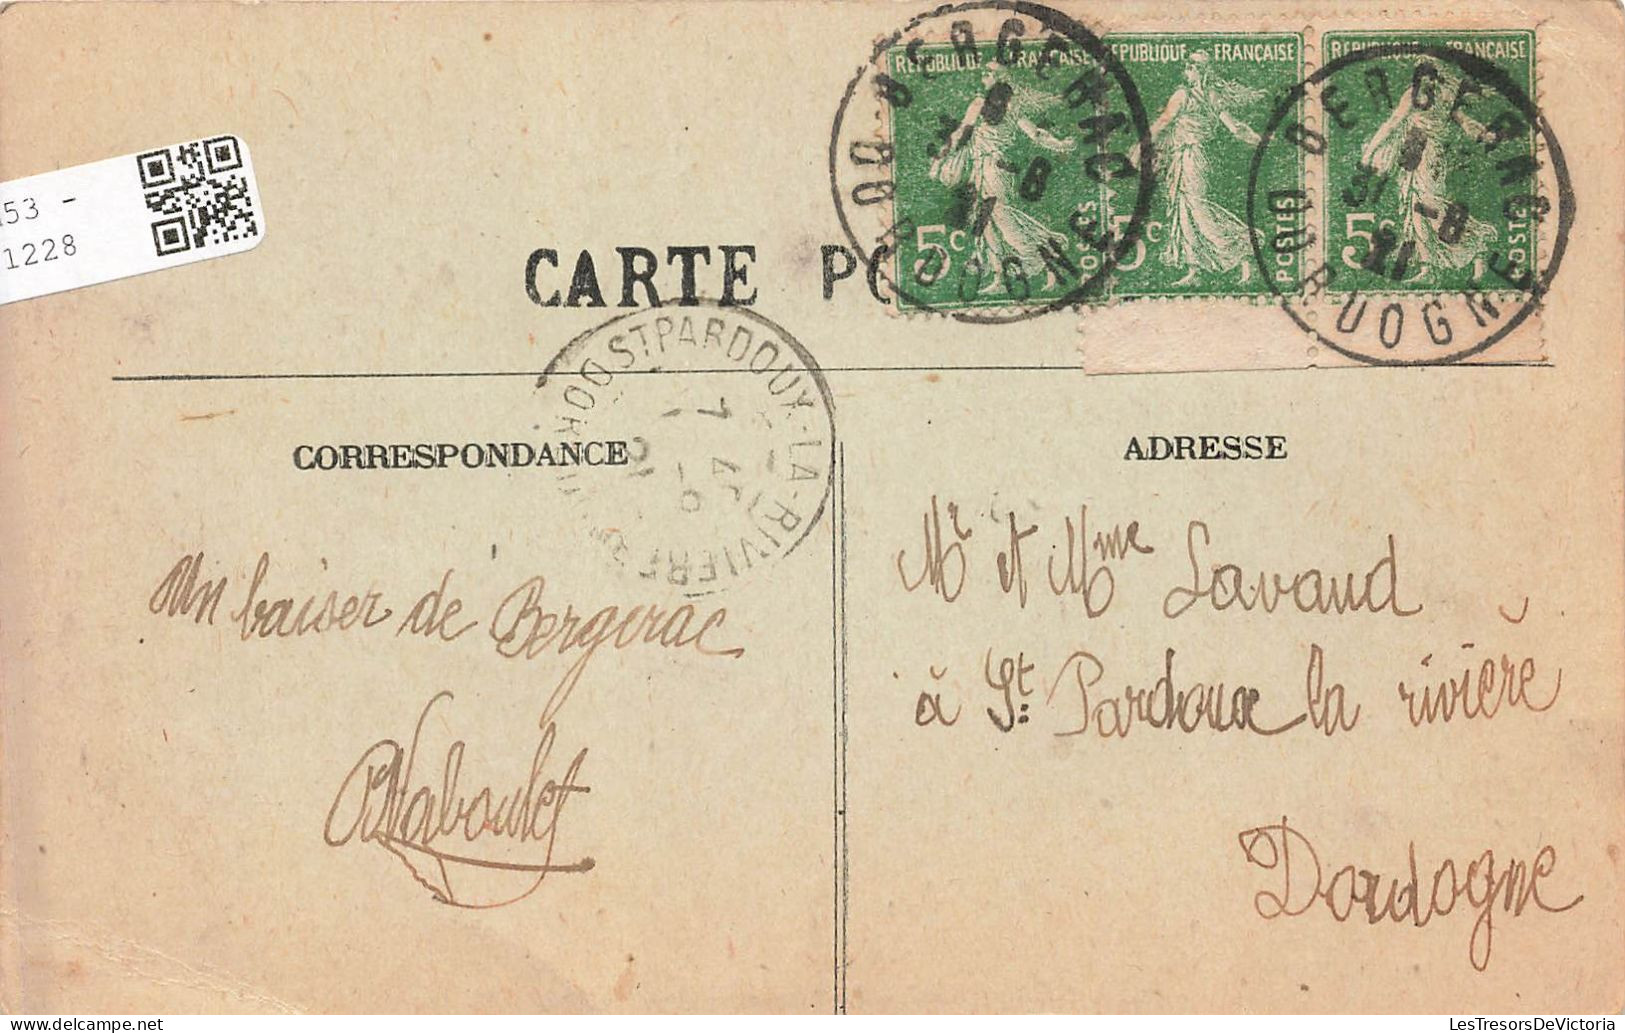 REPUBLIQUE FRANÇAISE
REPUBLIQUE FRANÇAISE
REPUBLIQUE FRANÇAISE
5c POSTES
5c POSTES
5c POSTES
BERGERAC
DORDOGNE
31 -8
21
BERGERAC
DORDOGNE
31 -8
21
53 -
1228
CARTE PO
ST PARDOUX-LA-RIVIERE
CORRESPONDANCE
ADRESSE
Un baiser de Bergerac
Naboulet
Mr et Mme Lavaud
à St. Pardoux la rivière
Dordogne
LesTresorsDeVictoria